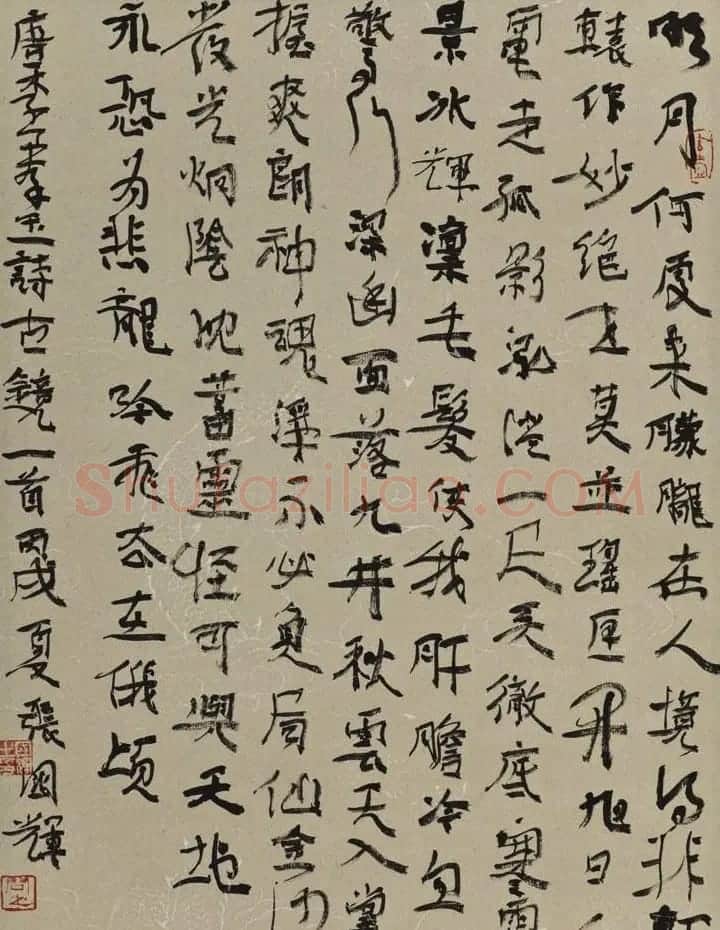 明月何處來朦朧在人境得非軒
轅作妙絕世莫並瑤匣開旭日
電走孤影泓澄一尺天徹底寒霜
景冰輝凜毛髮使我肝膽冷忽
驚行深幽面落九井秋雲天入掌
握爽朗神魂淨不必負局仙金沙
發光炯陰沈蓄靈怪可與天地
永恐為悲龍吟飛去在俄頃
唐李羣玉詩古鏡一首丙戌夏張國輝
Shufaziliao.COM